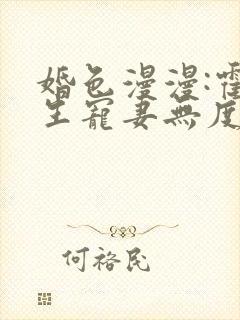 婚色漫漫:霍
生寵妻無度
何裕民